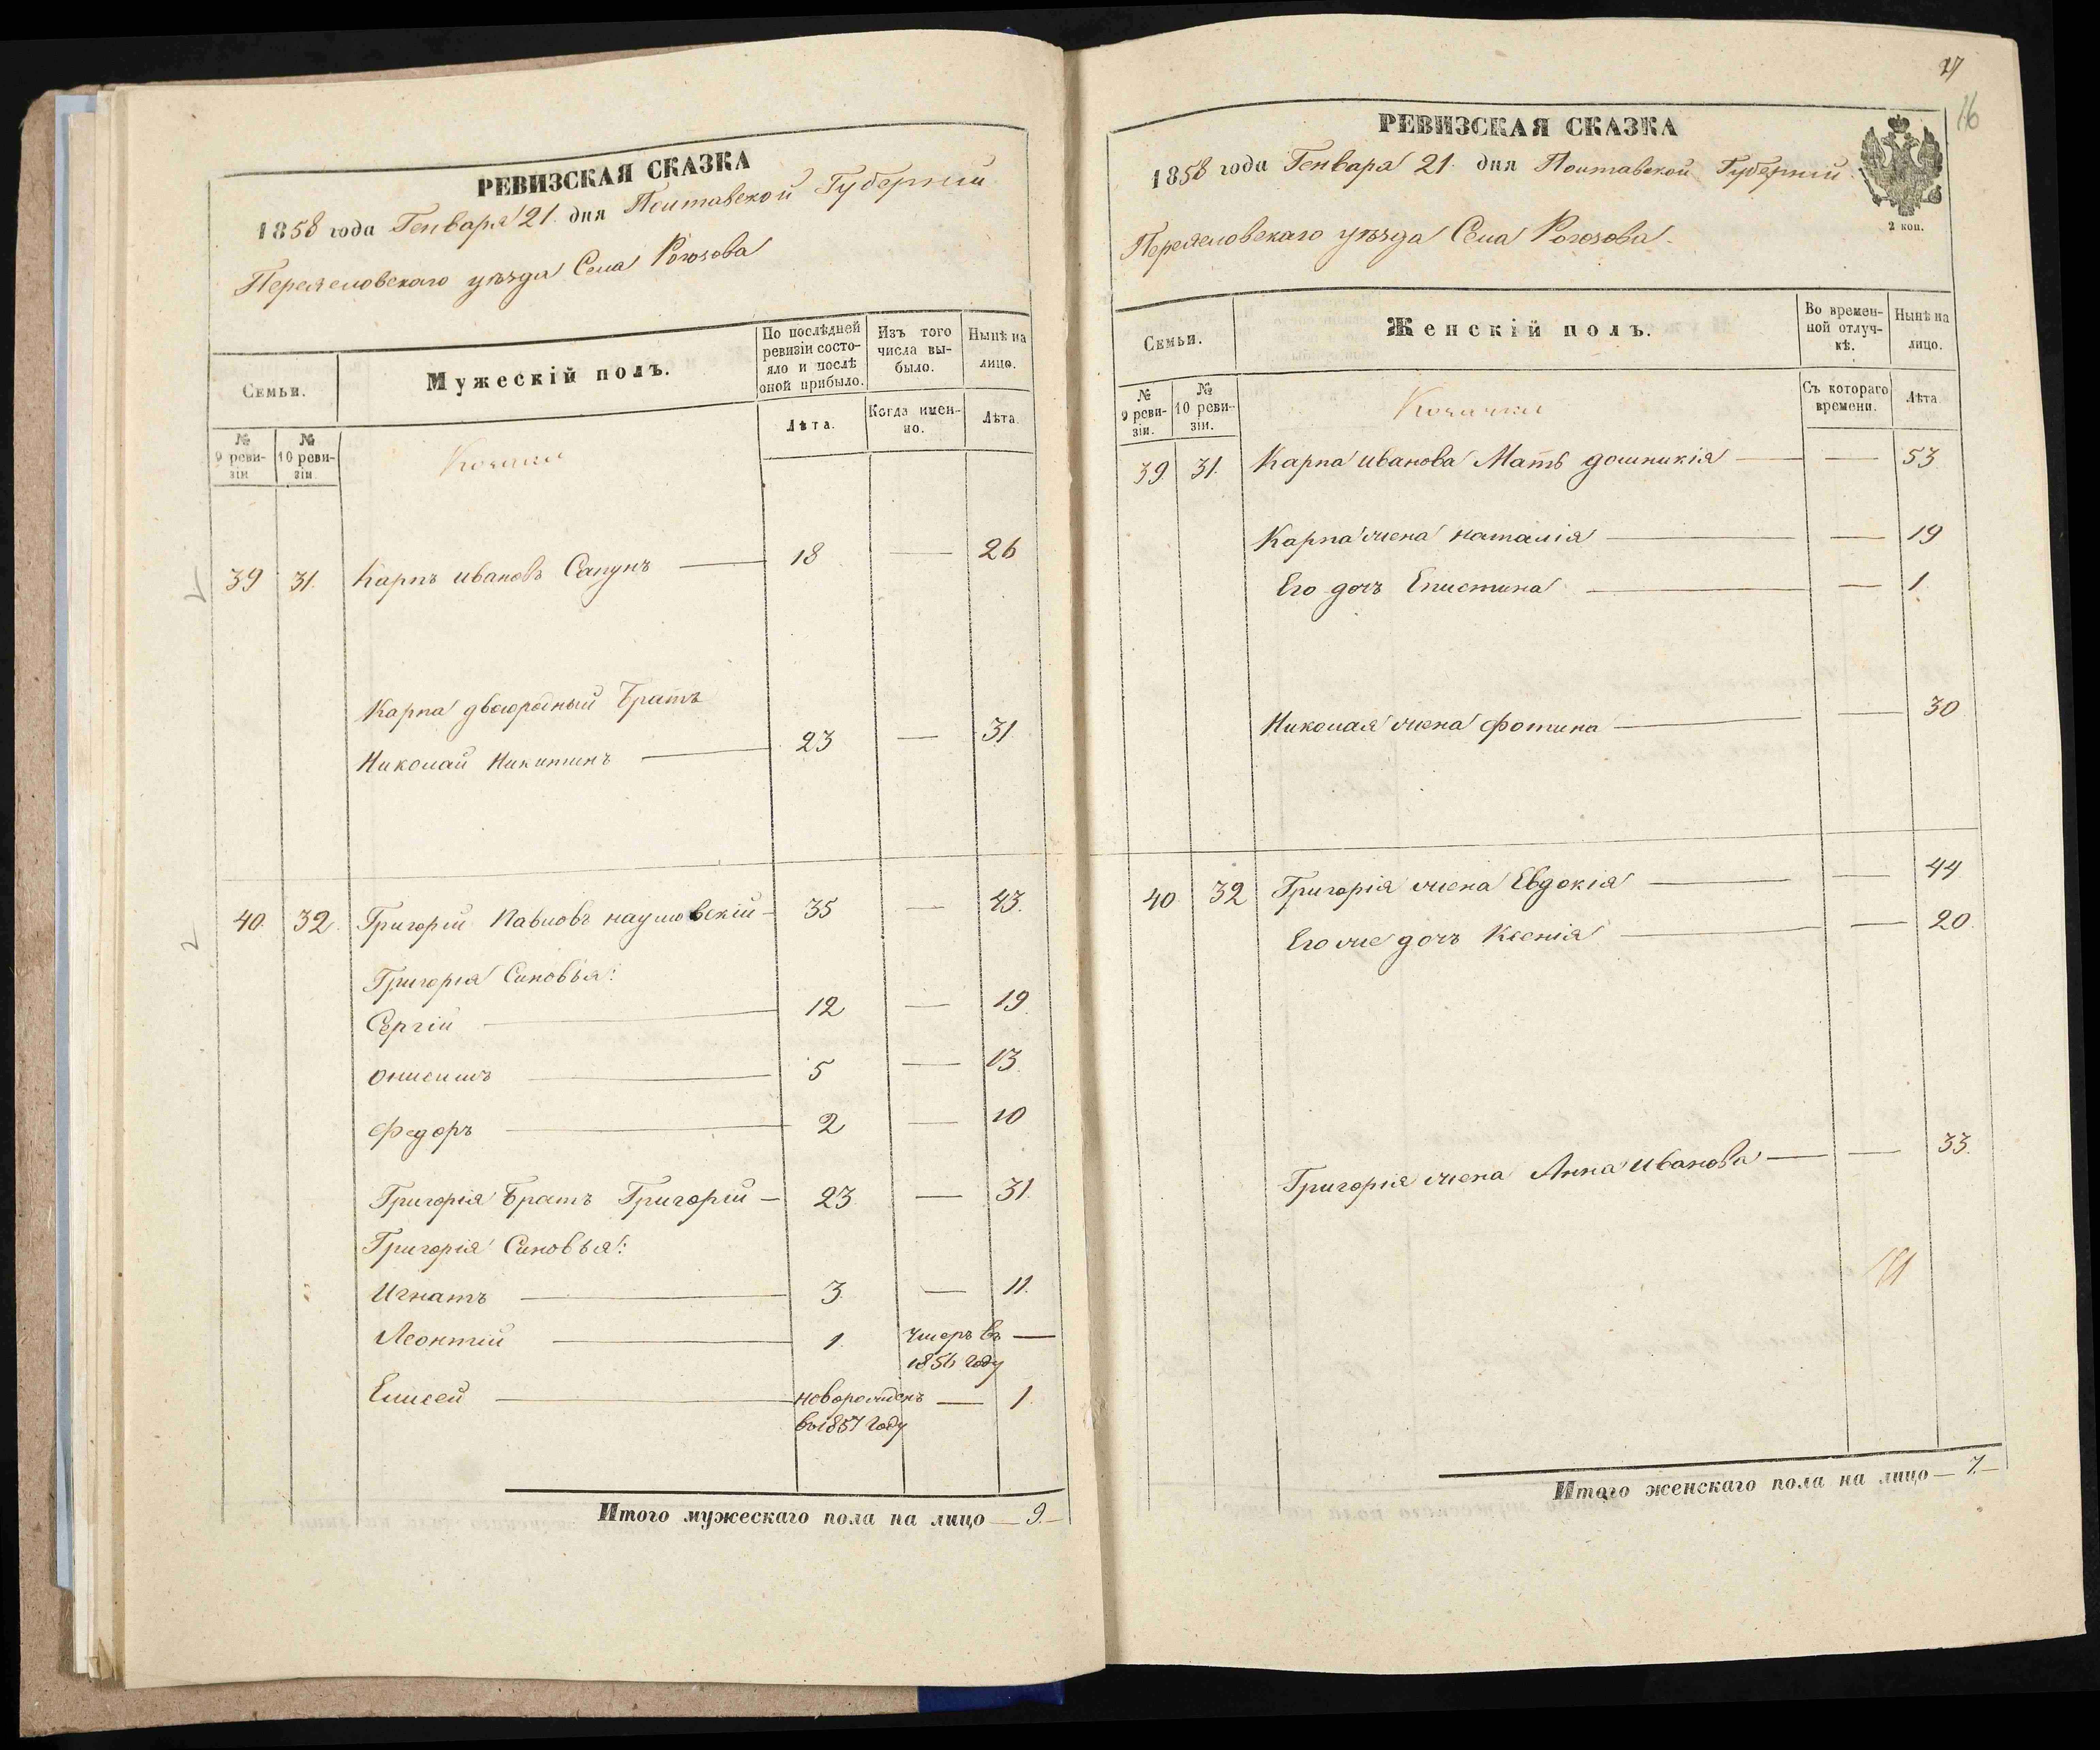 РЕВИЗСКАЯ СКАЗКА
1858 года Генваря 21. дня Полтавской Губерніи
Переяславскаго уѣзда Села Рогозова
Семьи.
Мужескій полъ.
По послѣдней ревизіи состояло и послѣ оной прибыло.
Изъ того числа выбыло.
Нынѣ на лицо.
№ 9 ревизіи
№ 10 ревизіи.
Козаки
Лѣта.
Когда именно.
Лѣта.
39 31. Карпъ Ивановъ Сапунъ — 18 — 26
Карпа двоюродный Братъ
Николай Никитинъ — 23 — 31
40. 32. Григорій Павловъ Наумовскій — 35 — 43.
Григорія Синовья:
Сергій — 12 — 19.
Онисимъ — 5 — 13.
Федоръ — 2 — 10
Григорія Братъ Григорій — 23 — 31.
Григорія Синовья:
Игнатъ — 3. — 11.
Леонтій — 1. умеръ въ —
1856 году
Елисей — новорожденъ — 1
во 1857 году
Итого мужескаго пола на лицо — 9. —
27
16
РЕВИЗСКАЯ СКАЗКА
1858 года Генваря 21. дня Полтавской Губерніи
2 коп.
Переясловскаго уѣзда Села Рогозова.
Семьи.
Женскій полъ.
Во временной отлучкѣ.
Нынѣ на лицо.
№ 9 ревизіи.
№ 10 ревизіи.
Козачки
Съ котораго времени.
Лѣта
39. 31. Карпа Иванова Мать Домникія — — 53
Карпа жена Наталія — — 19
Его дочъ Епистина — — 1.
Николая жена Фотина — — 30
40 32 Григорія жена Евдокія — — 44
Его же дочъ Ксенія — — 20.
Григорія жена Анна Иванова — — 33.
Итого женскаго пола на лицо — 7. —